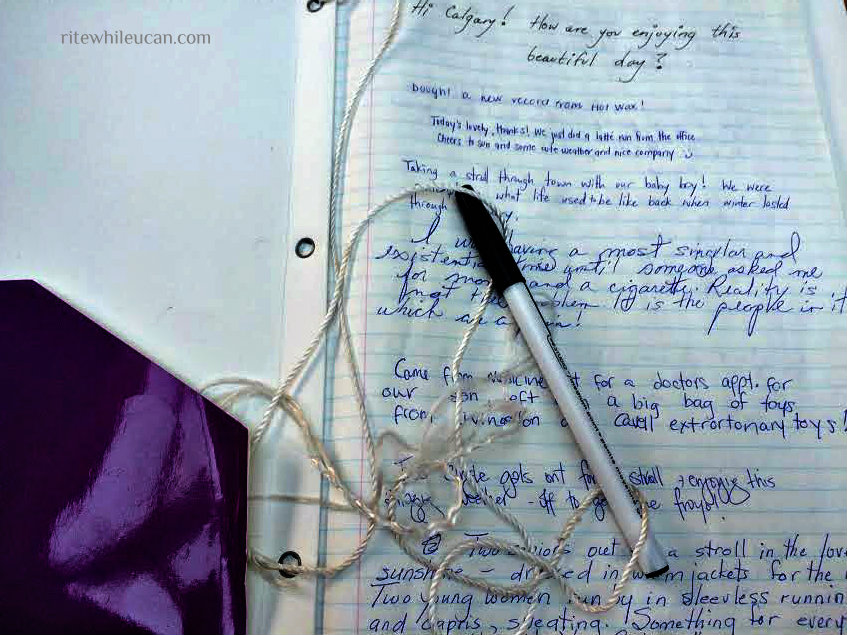 ritewhileucan.com
Hi Calgary! How are you enjoying this
beautiful day?
Bought a new record from Hot Wax!
Today's lovely, thanks! We just did a latté run from the office
Cheers to sun and some cute weather and nice company
Taking a stroll through town with our baby boy! We were
what life used to be like back when winter lasted
through
I was having a most singular and
existential time until someone asked me
for money and a cigarette. Reality is
not the problem It is the people in it
which are a
Came from Medicine for a doctors appt. for
our son, left a big bag of toys
from Livingston and Cavell extrortonary toys!
gets out for stroll + enjoys this
- off to get
Two seniors out a stroll in the
sunshine - dressed in warm jackets for the
Two young women run by in sleevless
and capris, sweating. Something for